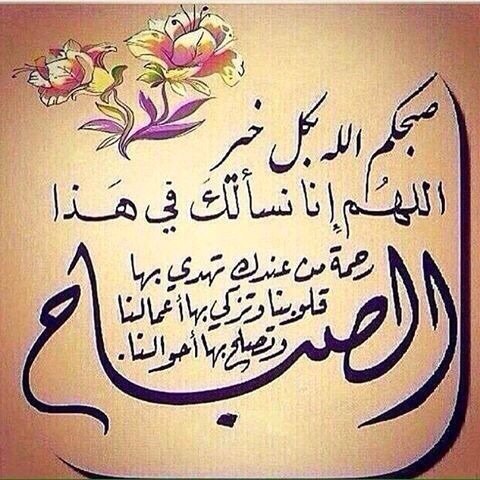 صبحكم الله بكل خير
اللهُم إنا نسألكَ في هَذا
الصباح
رحمة من عندك تهدي بها
قلوبنا وتزكي بها أعمالنا
وتصلح بها أحوالنا.